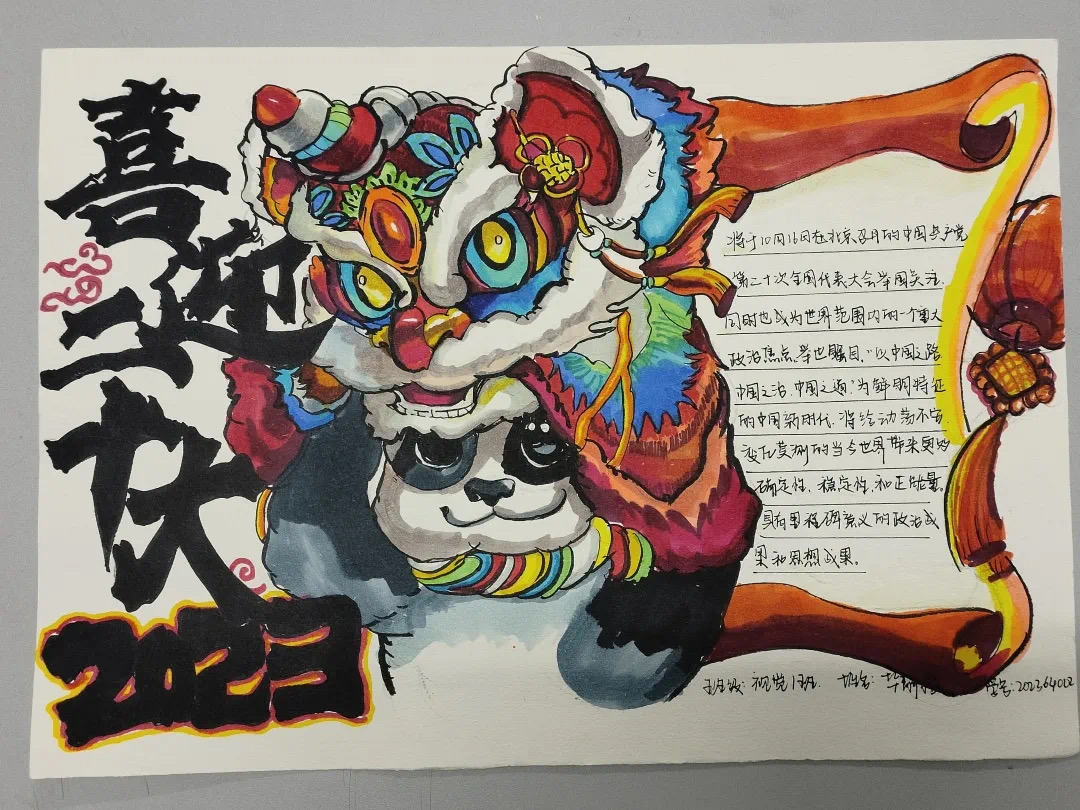 喜迎
二十大
2023
将于10月16日在北京召开的中国共产党
第二十次全国代表大会举国关注,
同时也成为世界范围内的一个重大
政治焦点、举世瞩目。"以中国之路
中国之治、中国之道"为鲜明特征
的中国新时代,将给动荡不安
变化莫测的当今世界带来更多
确定性、稳定性、和正能量。
具有里程碑意义的政治成
果和思想成果。
班级:视觉1班. 姓名: 学号:202364012